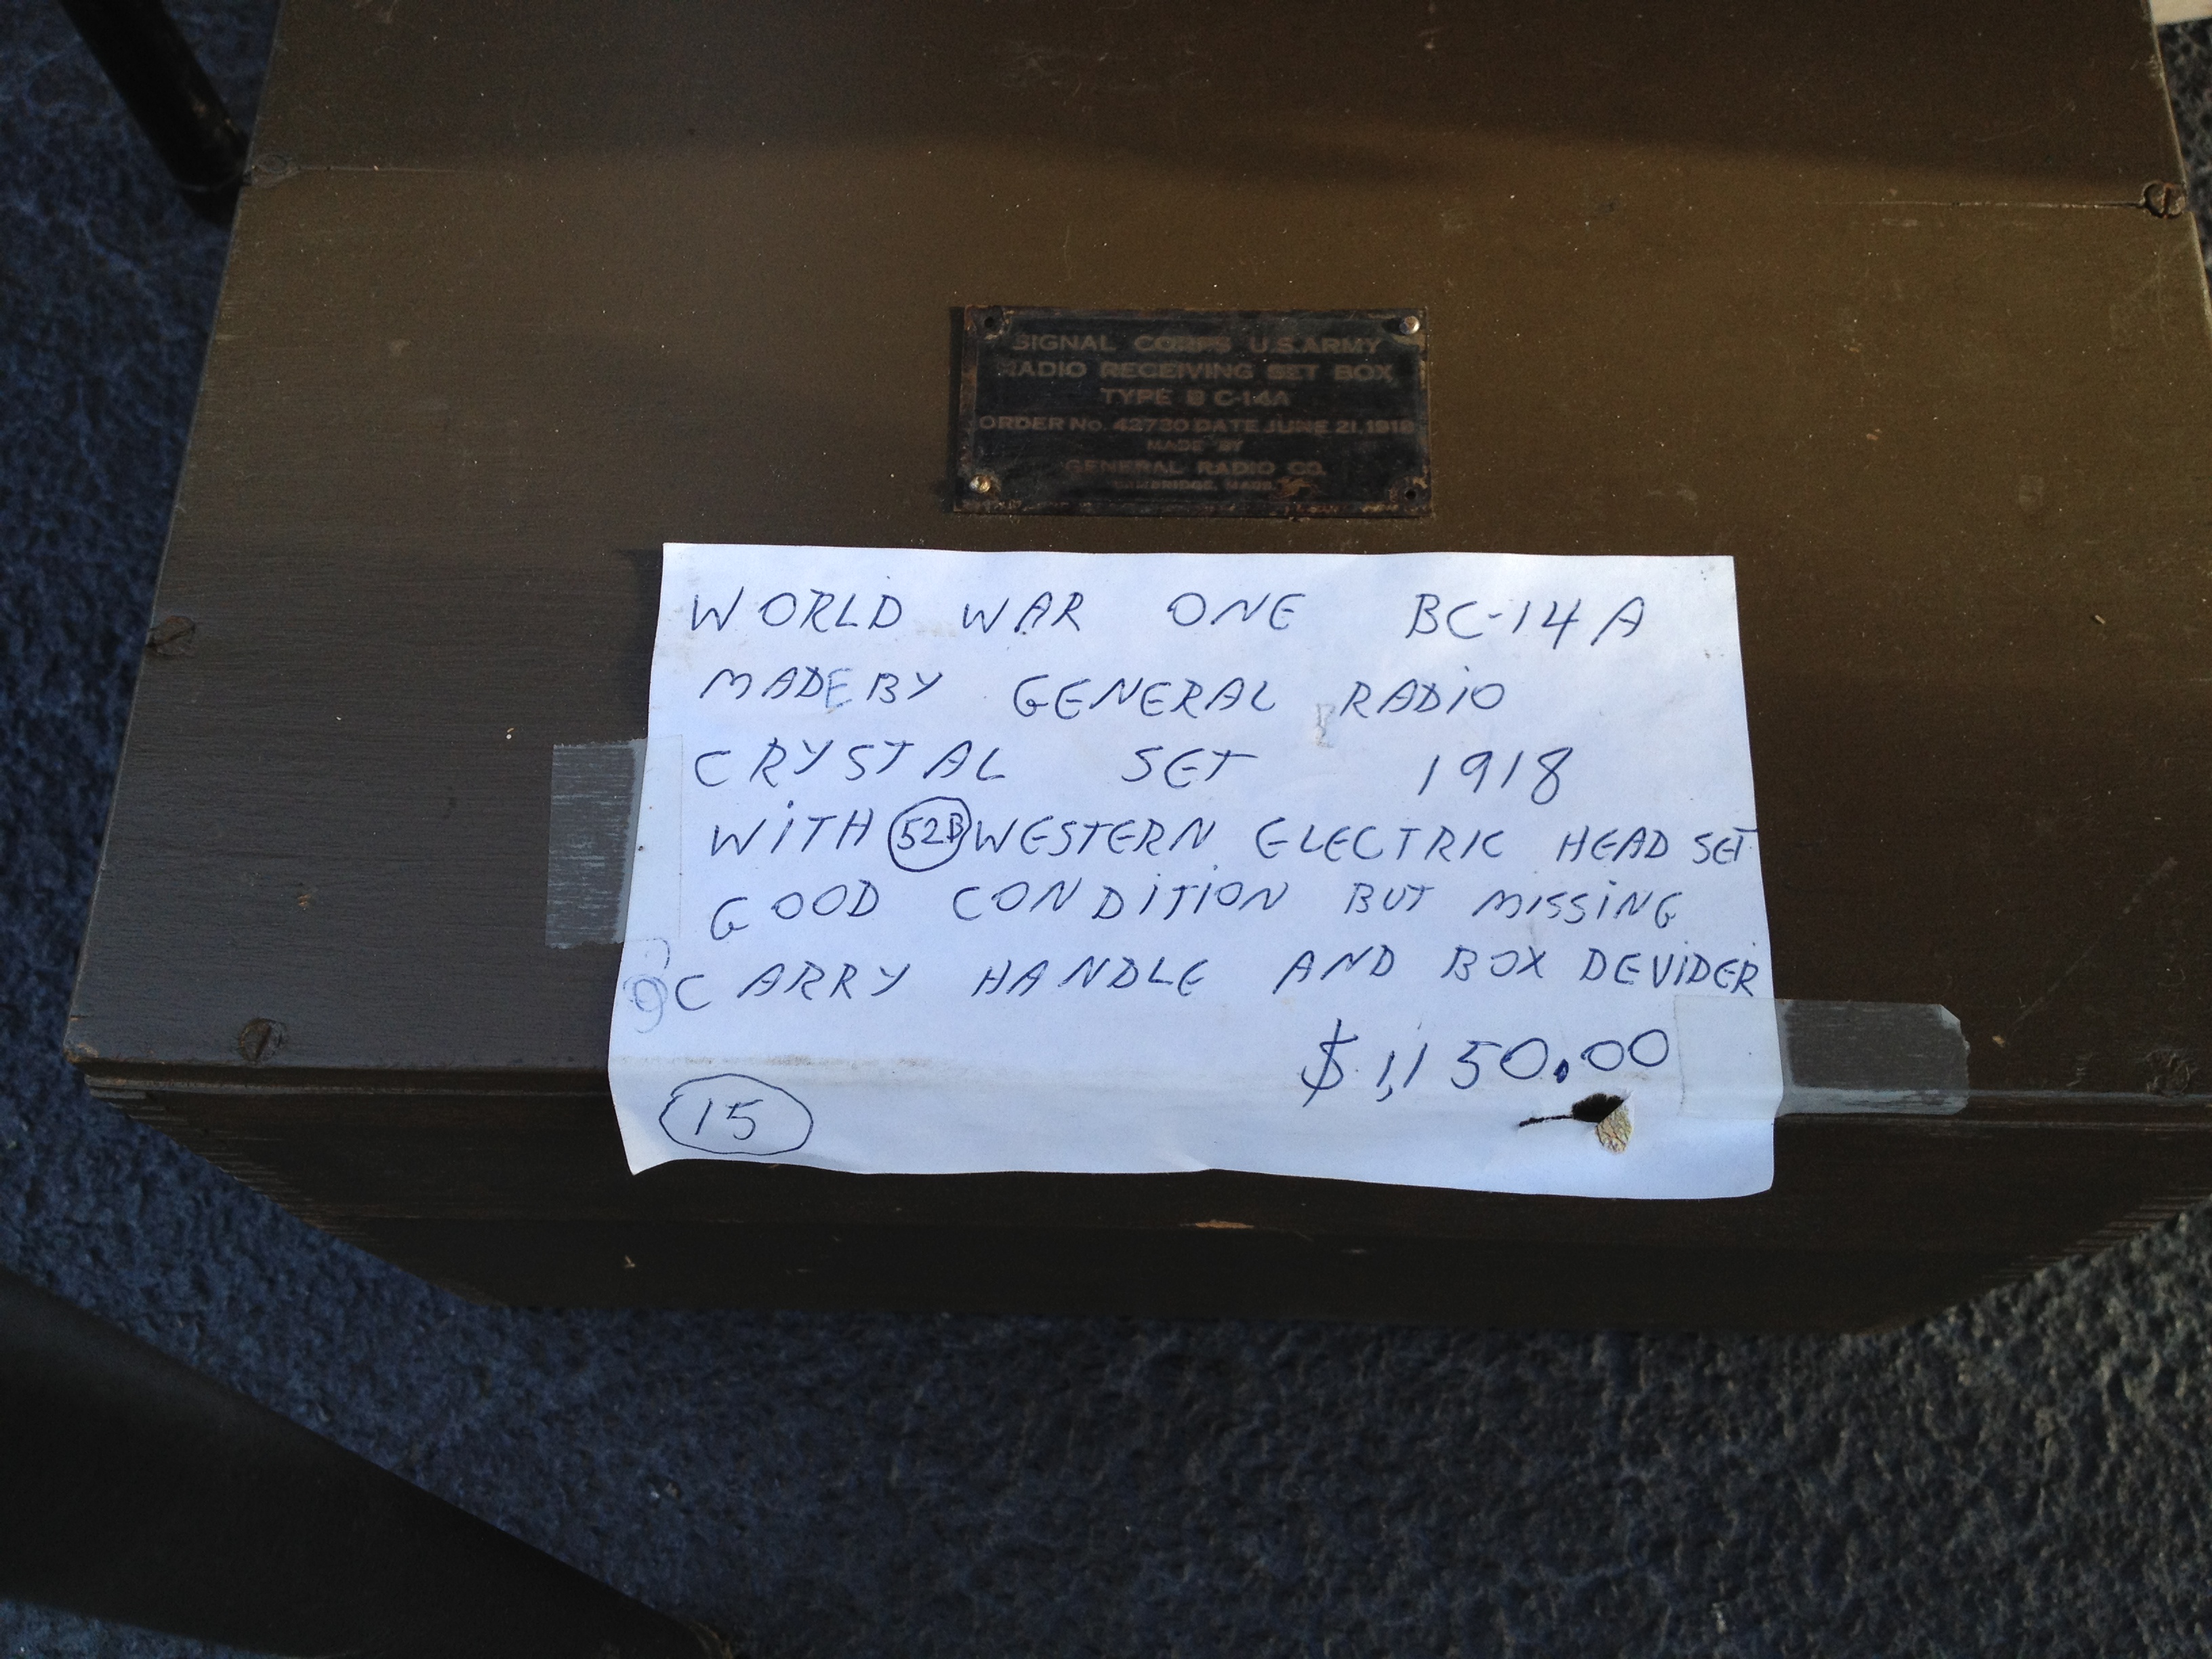 SIGNAL CORPS U.S.ARMY
RADIO RECEIVING SET BOX
TYPE BC-14A
ORDER No. 42730 DATE JUNE 21, 1918
MADE BY
GENERAL RADIO CO.
CAMBRIDGE, MASS.
WORLD WAR ONE BC-14A
MADE BY GENERAL RADIO
CRYSTAL SET 1918
WITH 52B WESTERN ELECTRIC HEAD SET
GOOD CONDITION BUT MISSING
CARRY HANDLE AND BOX DEVIDER
$1,150.00
15